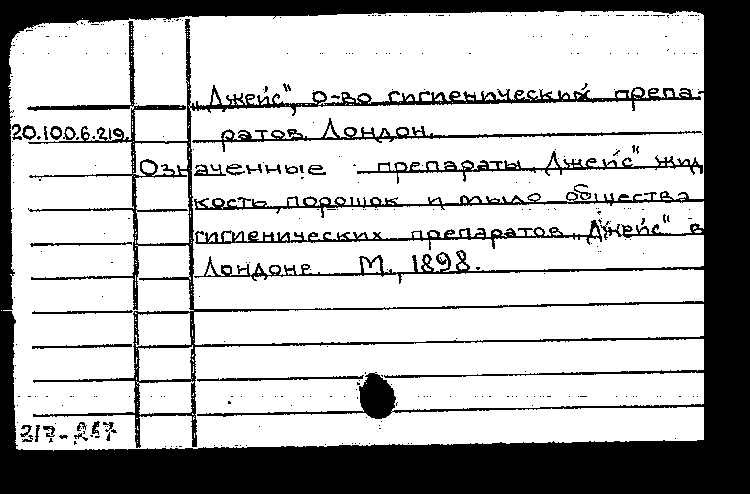 „Джейс", о-во гигиенических препа-
20.100.6.219. ратов. Лондон.
Означенные препараты „Джейс" жид
кость, порошок и мыло общества
гигиенических препаратов „Джейс" в
Лондоне. М., 1898.
317-267